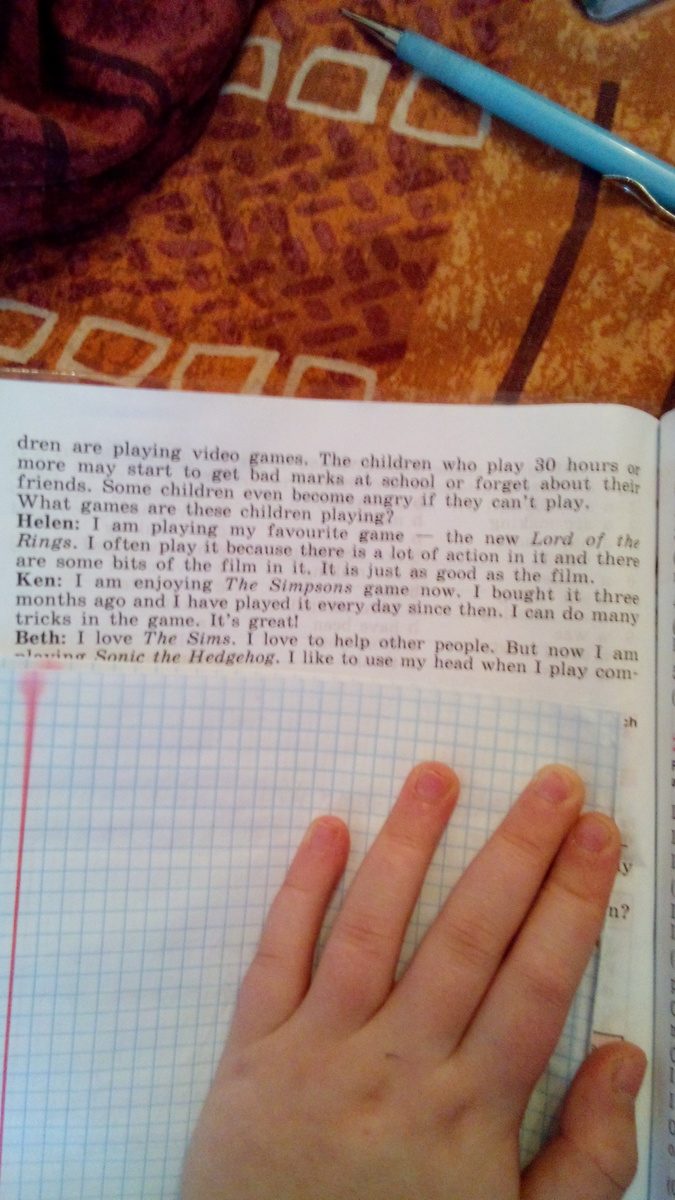 dren are playing video games. The children who play 30 hours or
more may start to get bad marks at school or forget about their
friends. Some children even become angry if they can't play.
What games are these children playing?
Helen: I am playing my favourite game — the new Lord of the
Rings. I often play it because there is a lot of action in it and there
are some bits of the film in it. It is just as good as the film.
Ken: I am enjoying The Simpsons game now. I bought it three
months ago and I have played it every day since then. I can do many
tricks in the game. It's great!
Beth: I love The Sims. I love to help other people. But now I am
playing Sonic the Hedgehog. I like to use my head when I play com-
ch
ly
n?